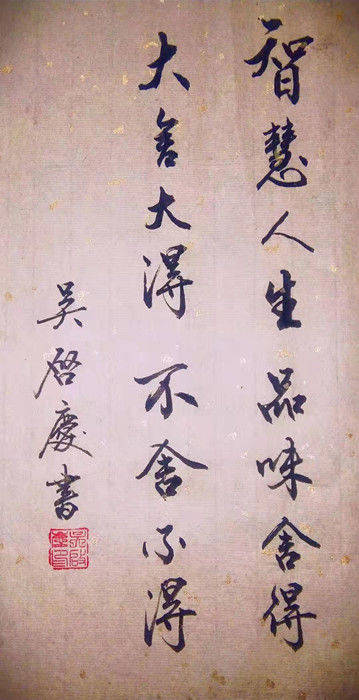 智慧人生品味舍得
大舍大得不舍不得
吴启慶书